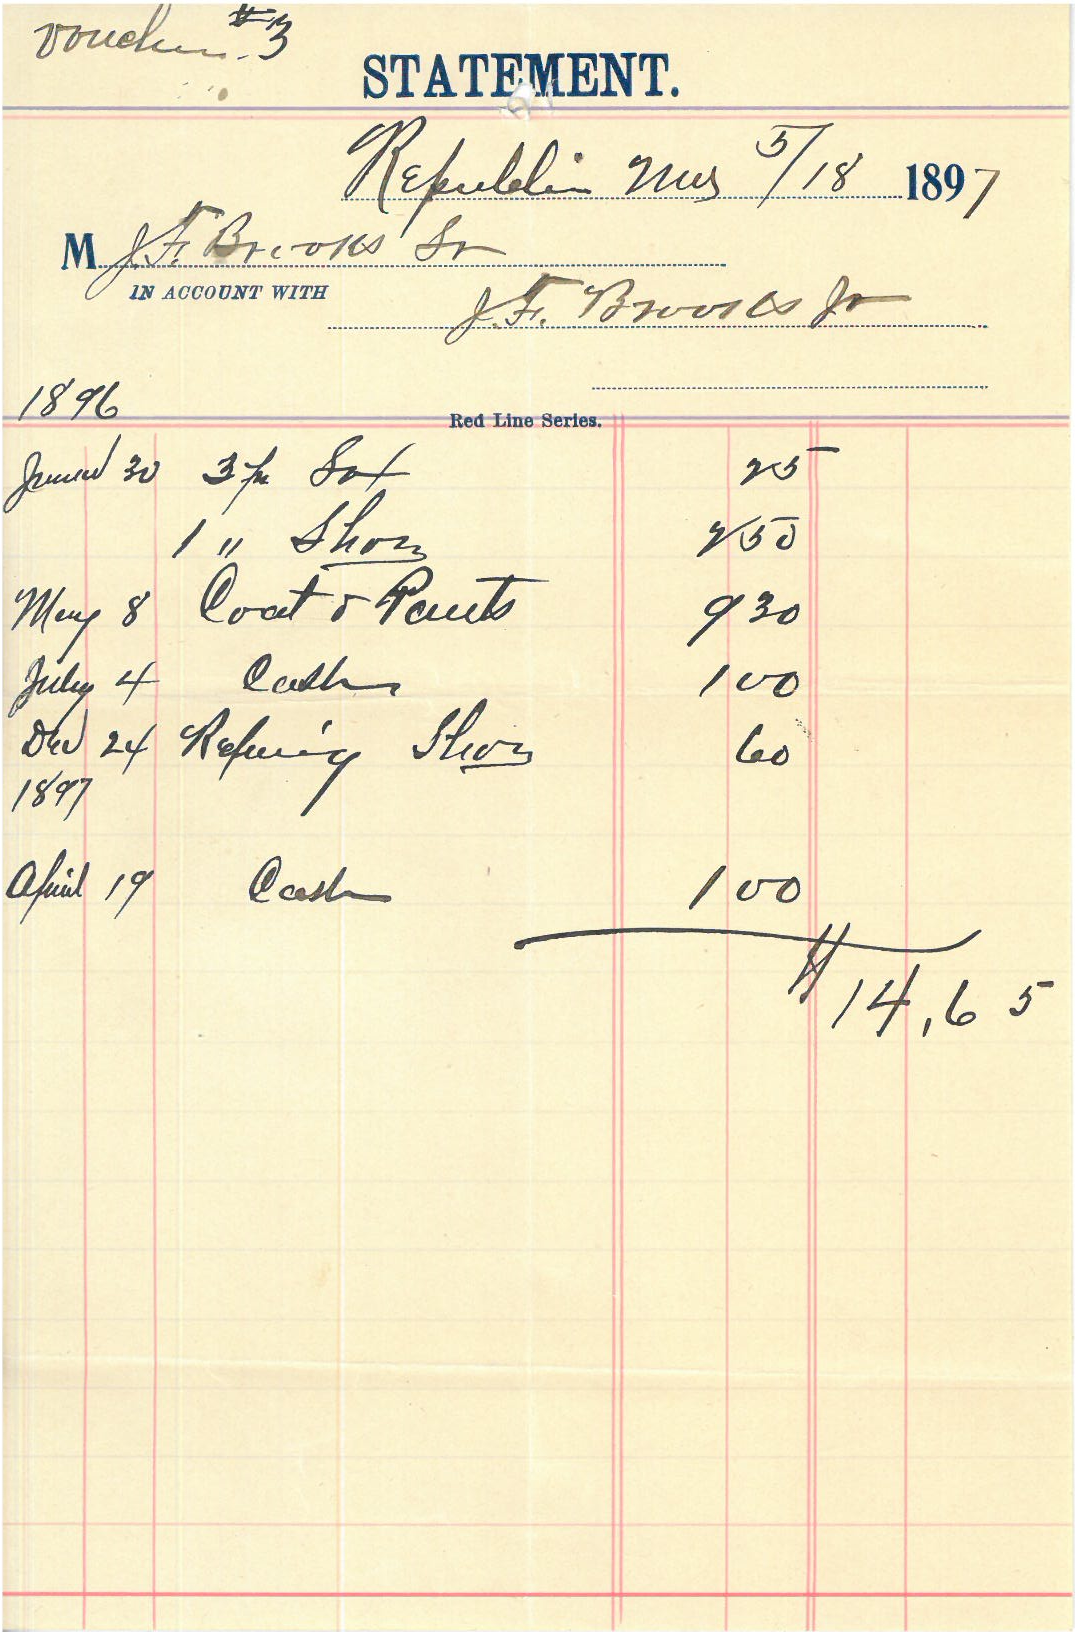 Voucher #3
STATEMENT.
Republic Mo 5/18 1897
M J. F. Brooks Sr
IN ACCOUNT WITH
J. F. Brooks Jr
1896
Red Line Series.
30 3 pr Sox 25
1 " Shoes 2 50
May 8 Coat & Pants 9 30
July 4 Cash 1 00
Dec 24 Repairing Shoes 60
1897
April 19 Cash 1 00
$14,65